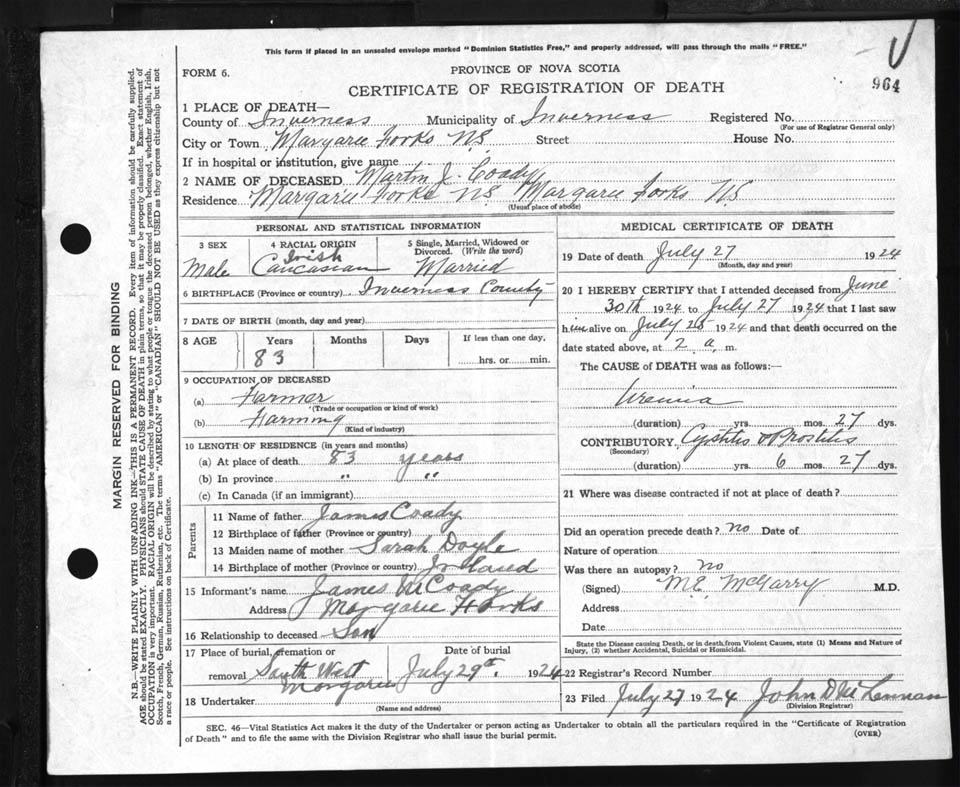 This form if placed in an unsealed envelope marked "Dominion Statistics Free," and properly addressed, will pass through the mails "FREE."
FORM 6.
PROVINCE OF NOVA SCOTIA
964
CERTIFICATE OF REGISTRATION OF DEATH
1 PLACE OF DEATH—
County of Inverness Municipality of Inverness Registered No.
(For use of Registrar General only)
City or Town Margaree Forks N.S Street House No.
If in hospital or institution, give name
2 NAME OF DECEASED Martin J. Coady
Residence Margaree Forks N.S Margaree Forks N.S
(Usual place of abode)
PERSONAL AND STATISTICAL INFORMATION
3 SEX 4 RACIAL ORIGIN 5 Single, Married, Widowed or Divorced. (Write the word)
Male Irish Caucasian Married
6 BIRTHPLACE (Province or country) Inverness County
7 DATE OF BIRTH (month, day and year)
8 AGE Years Months Days If less than one day,
83 hrs. or min.
9 OCCUPATION OF DECEASED
(a) Farmer
(Trade or occupation or kind of work)
(b) Farming
(Kind of industry)
10 LENGTH OF RESIDENCE (in years and months)
(a) At place of death 83 years
(b) In province " "
(c) In Canada (if an immigrant)
Parents
11 Name of father James Coady
12 Birthplace of father (Province or country)
13 Maiden name of mother Sarah Doyle
14 Birthplace of mother (Province or country) Ireland
15 Informant's name James M Coady
Address Margarie Forks
16 Relationship to deceased Son
17 Place of burial, cremation or removal South West Margaree Date of burial July 29th. 1924
18 Undertaker
(Name and address)
MEDICAL CERTIFICATE OF DEATH
19 Date of death July 27 1924
(Month, day and year)
20 I HEREBY CERTIFY that I attended deceased from June
30th 1924 to July 27 1924 that I last saw
him alive on July 26 1924 and that death occurred on
date stated above, at 2 a. m.
The CAUSE of DEATH was as follows:—
Uremia
(duration) yrs. mos. 27 dys.
CONTRIBUTORY Cystitis & Prostitis
(Secondary)
(duration) yrs. 6 mos. 27 dys.
21 Where was disease contracted if not at place of death?
Did an operation precede death? no Date of
Nature of operation
Was there an autopsy? no
(Signed) M.E. McGarry M.D.
Address
Date
State the Disease causing Death, or in death, from Violent Causes, state (1) Means and Nature of Injury, (2) whether Accidental, Suicidal or Homicidal.
22 Registrar's Record Number
23 Filed July 27 1924 John D McLennan
(Division Registrar)
SEC. 46—Vital Statistics Act makes it the duty of the Undertaker or person acting as Undertaker to obtain all the particulars required in the "Certificate of Registration
of Death" and to file the same with the Division Registrar who shall issue the burial permit. (OVER)
MARGIN RESERVED FOR BINDING
N.B.—WRITE PLAINLY WITH UNFADING INK—THIS IS A PERMANENT RECORD. Every item of information should be carefully supplied.
AGE should be stated EXACTLY. PHYSICIANS should STATE CAUSE OF DEATH in plain terms, so that it may be properly classified. Exact statement of
OCCUPATION is very important. RACIAL ORIGIN will be described by stating to what people or tongue the deceased person belonged, whether English, Irish,
Scotch, French, German, Russian, Ruthenian, etc. The terms "AMERICAN" or "CANADIAN" SHOULD NOT BE USED as they express citizenship but not
a race or people. See instructions on back of Certificate.